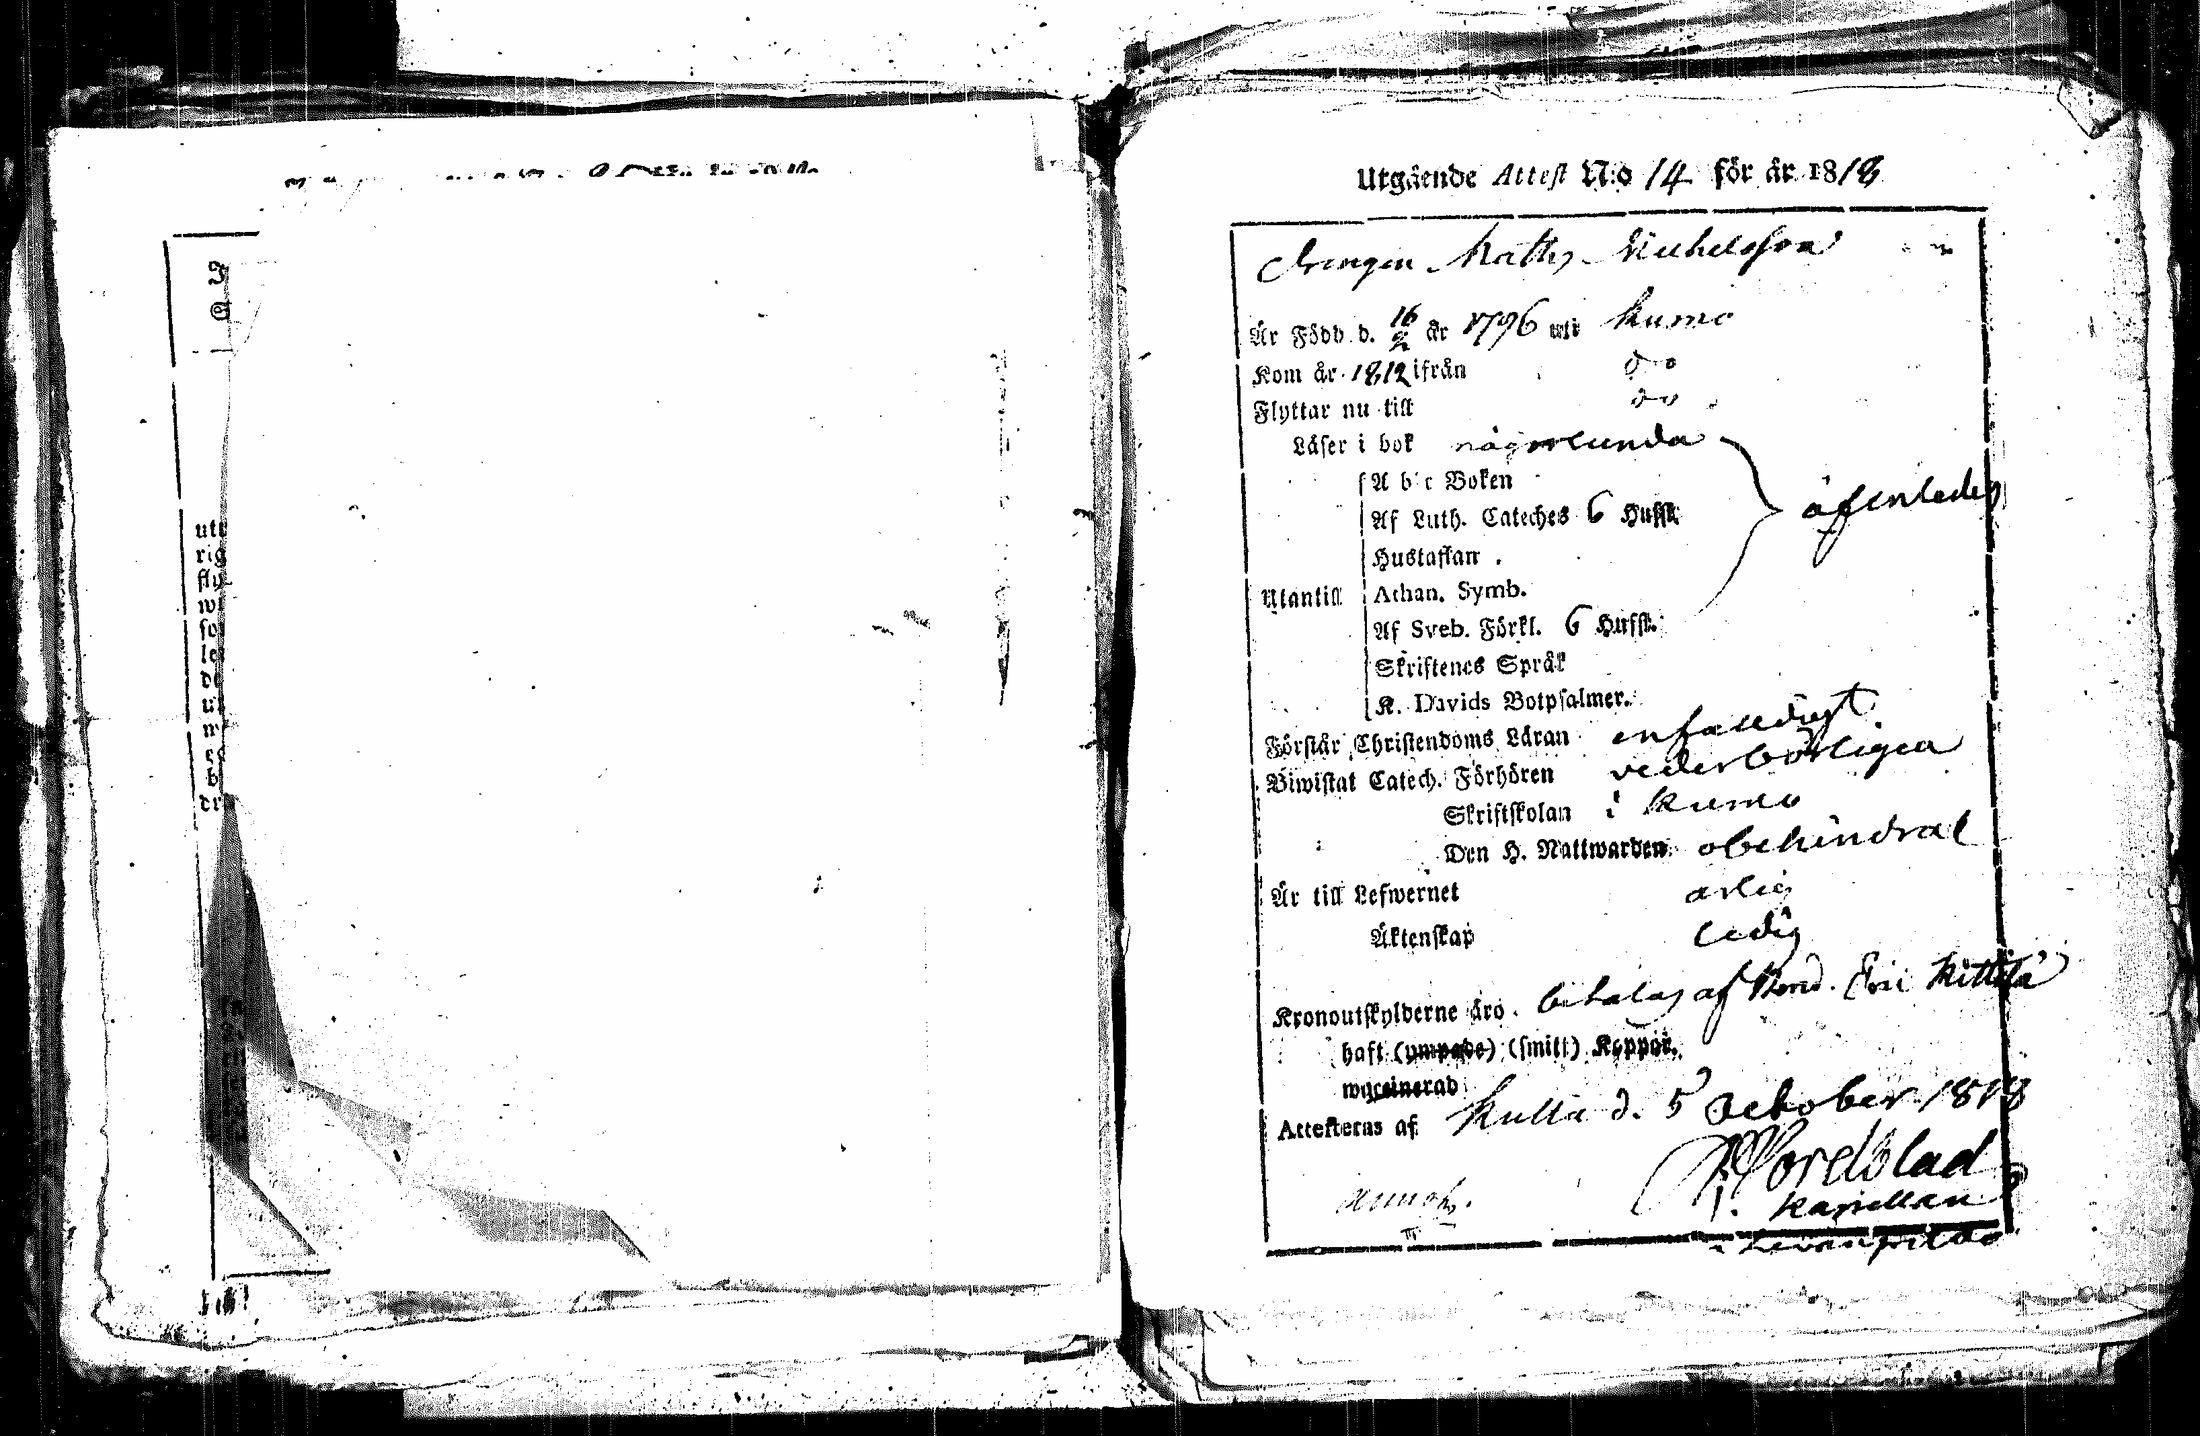 utt
rig
fly
w
so
le
de
u
m
e
b
dr
Utgående Attest N:o 14 för år 1818
Drengen Matts Michelsson
Är Född d. 16/2 år 1796 uti Kumo
Kom år 1812 ifrån do
Flyttar nu till do
Läser i bok någorlunda
A b c Boken
Af Luth. Cateches 6 Hufst. äfenledes
Hustaflan
Utantill Athan. Symb.
Af Sveb. Förkl. 6 Hufst.
Skriftenes Språk
K. Davids Botpsalmer.
Förstår Christendoms Läran enfaldigt
Biwistat Catech. Förhören vederbörligen
Skriftskolan i Kumo
Den H. Nattwarden obehindrat
Är till Lefwernet ärlig
Äktenskap ledig
Kronoutskylderne äro betalas af Bond. Eric Kittilä
haft (ympade) (smitt) Koppor.
waccinerad
Attesteras af Kulla d. 5 October 1818
Nordblad
Kapellan